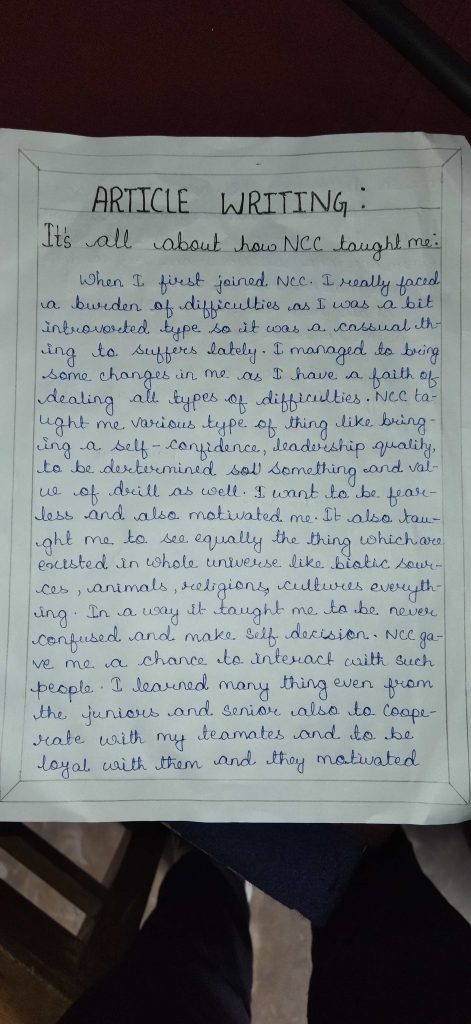 ARTICLE WRITING:
It's all about how NCC taught me:
When I first joined NCC. I really faced
a burden of difficulties as I was a bit
introverted type so it was a cassual th-
ing to suffers lately. I managed to bring
some changes in me as I have a faith of
dealing all types of difficulties. NCC ta-
ught me various type of thing like bring-
ing a self-confidence, leadership quality,
to be dertermined something and val-
ue of drill as well. I want to be fear-
less and also motivated me. It also tau-
ght me to see equally the thing which are
existed in whole universe like biotic sour-
ces, animals, religions, cultures everyth-
ing. In a way it taught me to be never
confused and make self decision. NCC ga-
ve me a chance to interact with such
people. I learned many thing even from
the juniors and senior also to coope-
rate with my teamates and to be
loyal with them and they motivated